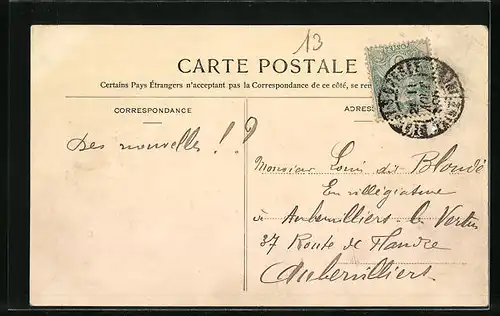 13
CARTE POSTALE
Certains Pays Étrangers n'acceptant pas la Correspondance de ce côté, se ren
CORRESPONDANCE
ADRES
Des nouvelles !?
Monsieur Louis dit Blondé
En villégiature
à Aubervilliers-les Vertus
37 Route de Flandre
Aubervilliers.